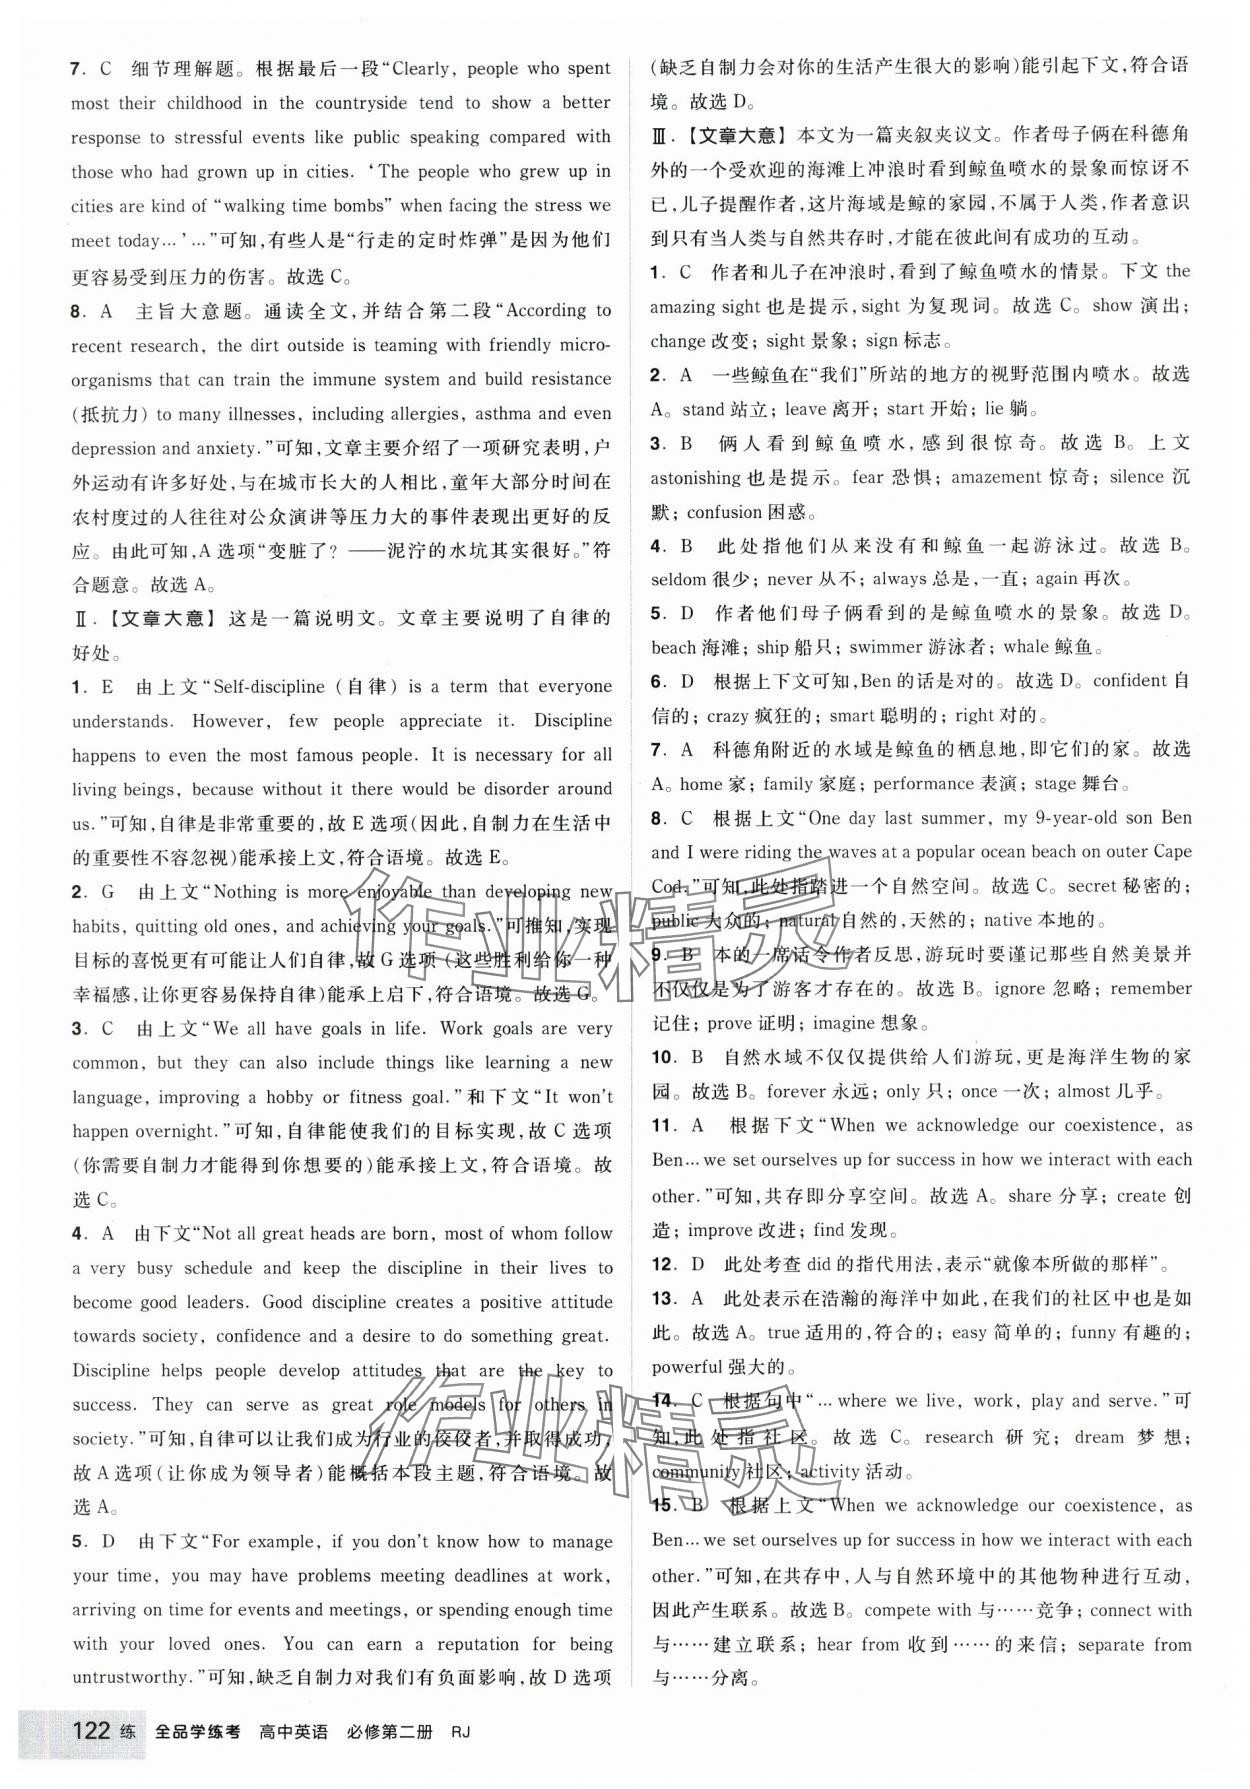 7. C　细节理解题。根据最后一段“Clearly, people who spent
most their childhood in the countryside tend to show a better
response to stressful events like public speaking compared with
those who had grown up in cities. ‘The people who grew up in
cities are kind of “walking time bombs” when facing the stress we
meet today…’…”可知,有些人是“行走的定时炸弹”是因为他们
更容易受到压力的伤害。故选 C。
8. A　主旨大意题。通读全文,并结合第二段“According to
recent research, the dirt outside is teaming with friendly micro-
organisms that can train the immune system and build resistance
(抵抗力) to many illnesses, including allergies, asthma and even
depression and anxiety.”可知,文章主要介绍了一项研究表明,户
外运动有许多好处,与在城市长大的人相比,童年大部分时间在
农村度过的人往往对公众演讲等压力大的事件表现出更好的反
应。由此可知,A 选项“变脏了? ——泥泞的水坑其实很好。”符
合题意。故选 A。
Ⅱ.【文章大意】这是一篇说明文。文章主要说明了自律的
好处。
1. E　由上文“Self-discipline (自律) is a term that everyone
understands. However, few people appreciate it. Discipline
happens to even the most famous people. It is necessary for all
living beings, because without it there would be disorder around
us.”可知,自律是非常重要的,故 E 选项(因此,自制力在生活中
的重要性不容忽视)能承接上文,符合语境。故选 E。
2. G　由上文“Nothing is more enjoyable than developing new
habits, quitting old ones, and achieving your goals.”可推知,实现
目标的喜悦更有可能让人们自律,故 G 选项 (这些胜利给你一种
幸福感,让你更容易保持自律)能承上启下,符合语境。故选 G。
3. C　由上文“We all have goals in life. Work goals are very
common, but they can also include things like learning a new
language, improving a hobby or fitness goal.”和下文“It won't
happen overnight.”可知,自律能使我们的目标实现,故 C 选项
(你需要自制力才能得到你想要的)能承接上文,符合语境。故
选 C。
4. A　由下文“Not all great heads are born, most of whom follow
a very busy schedule and keep the discipline in their lives to
become good leaders. Good discipline creates a positive attitude
towards society, confidence and a desire to do something great.
Discipline helps people develop attitudes that are the key to
success. They can serve as great role models for others in
society.”可知,自律可以让我们成为行业的佼佼者,并取得成功,
故 A 选项(让你成为领导者)能概括本段主题,符合语境。故
选 A。
5. D　由下文“For example, if you don't know how to manage
your time, you may have problems meeting deadlines at work,
arriving on time for events and meetings, or spending enough time
with your loved ones. You can earn a reputation for being
untrustworthy.”可知,缺乏自制力对我们有负面影响,故 D 选项
(缺乏自制力会对你的生活产生很大的影响)能引起下文,符合语
境。故选 D。
Ⅲ.【文章大意】本文为一篇夹叙夹议文。作者母子俩在科德角
外的一个受欢迎的海滩上冲浪时看到鲸鱼喷水的景象而惊讶不
已,儿子提醒作者,这片海域是鲸的家园,不属于人类,作者意识
到只有当人类与自然共存时,才能在彼此间有成功的互动。
1. C　作者和儿子在冲浪时,看到了鲸鱼喷水的情景。下文 the
amazing sight 也是提示,sight 为复现词。故选 C。show 演出;
change 改变; sight 景象; sign 标志。
2. A　一些鲸鱼在“我们”所站的地方的视野范围内喷水。故选
A。stand 站立; leave 离开; start 开始; lie 躺。
3. B　俩人看到鲸鱼喷水,感到很惊奇。故选 B。上文
astonishing 也是提示。fear 恐惧; amazement 惊奇; silence 沉
默; confusion 困惑。
4. B　此处指他们从来没有和鲸鱼一起游泳过。故选 B。
seldom 很少; never 从不; always 总是,一直; again 再次。
5. D　作者他们母子俩看到的是鲸鱼喷水的景象。故选 D。
beach 海滩; ship 船只; swimmer 游泳者; whale 鲸鱼。
6. D　根据上下文可知,Ben 的话是对的。故选 D。confident 自
信的; crazy 疯狂的; smart 聪明的; right 对的。
7. A　科德角附近的水域是鲸鱼的栖息地,即它们的家。故选
A。home 家; family 家庭; performance 表演; stage 舞台。
8. C　根据上文“One day last summer, my 9-year-old son Ben
and I were riding the waves at a popular ocean beach on outer Cape
Cod.”可知,此处指踏进一个自然空间。故选 C。secret 秘密的;
public 大众的; natural 自然的,天然的; native 本地的。
9. B　本的一席话令作者反思,游玩时要谨记有些自然美景并
不仅仅是为了游客才存在的。故选 B。ignore 忽略; remember
记住; prove 证明; imagine 想象。
10. B　自然水域不仅仅提供给人们游玩,更是海洋生物的家
园。故选 B。forever 永远; only 只; once 一次; almost 几乎。
11. A　根据下文“When we acknowledge our coexistence, as
Ben… we set ourselves up for success in how we interact with each
other.”可知,共存即分享空间。故选 A。share 分享; create 创
造; improve 改进; find 发现。
12. D　此处考查 did 的指代用法,表示“就像本所做的那样”。
13. A　此处表示在浩瀚的海洋中如此,在我们的社区中也是如
此。故选 A。true 适用的,符合的; easy 简单的; funny 有趣的;
powerful 强大的。
14. C　根据句中“… where we live, work, play and serve.”可
知,此处指社区。故选 C。research 研究; dream 梦想;
community 社区; activity 活动。
15. B　根据上文“When we acknowledge our coexistence, as
Ben… we set ourselves up for success in how we interact with each
other.”可知,在共存中,人与自然环境中的其他物种进行互动,
因此产生联系。故选 B。compete with 与……竞争; connect with
与……建立联系; hear from 收到……的来信; separate from
与……分离。
作业精灵
作业精灵
122 练　全品学练考　高中英语　必修第二册　RJ